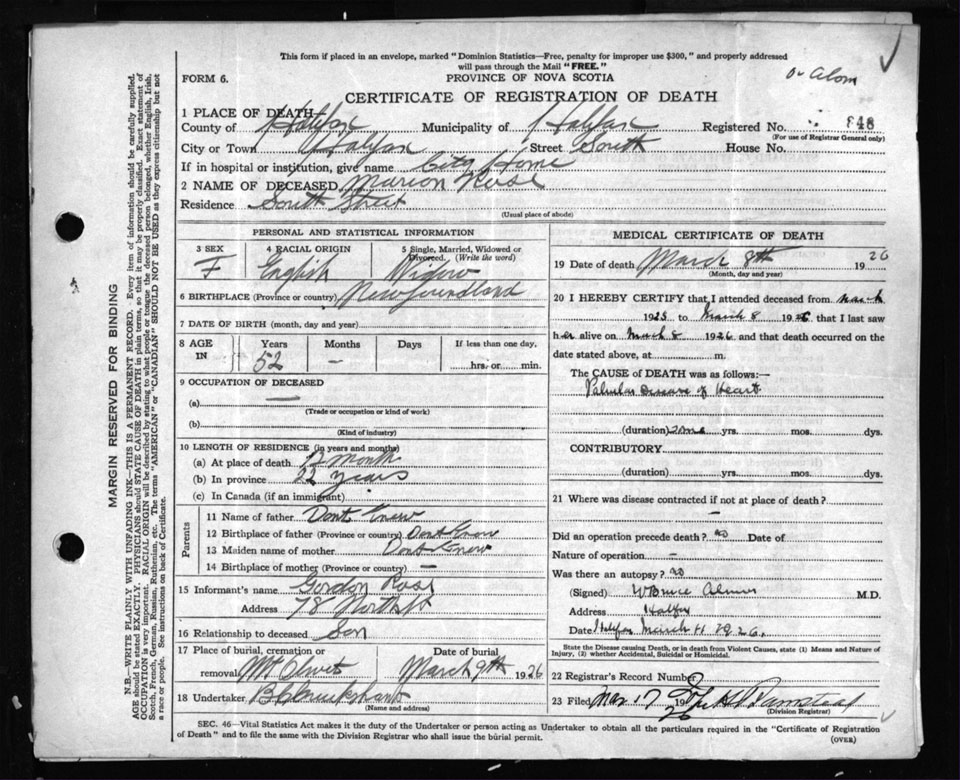 This form if placed in an envelope, marked "Dominion Statistics—Free, penalty for improper use $300," and properly addressed
will pass through the Mail "FREE."
FORM 6.
PROVINCE OF NOVA SCOTIA
CERTIFICATE OF REGISTRATION OF DEATH
1 PLACE OF DEATH—
County of Halifax Municipality of Halifax Registered No. 848
(For use of Registrar General only)
City or Town Halifax Street South House No.
If in hospital or institution, give name City Home
2 NAME OF DECEASED Marion Rose
Residence South Street
(Usual place of abode)
PERSONAL AND STATISTICAL INFORMATION
3 SEX 4 RACIAL ORIGIN 5 Single, Married, Widowed or Divorced. (Write the word)
F English Widow
6 BIRTHPLACE (Province or country) Newfoundland
7 DATE OF BIRTH (month, day and year)
8 AGE IN Years Months Days If less than one day,
52 — hrs. or min.
9 OCCUPATION OF DECEASED
(a) —
(Trade or occupation or kind of work)
(b)
(Kind of industry)
10 LENGTH OF RESIDENCE (in years and months)
(a) At place of death 12 Month
(b) In province 22 years
(c) In Canada (if an immigrant)
Parents
11 Name of father Dont Know
12 Birthplace of father (Province or country) Dont Know
13 Maiden name of mother Dont Know
14 Birthplace of mother (Province or country) —
15 Informant's name Gordon Rose
Address 78 North St
16 Relationship to deceased Son
17 Place of burial, cremation or removal Mt Olivet Date of burial March 9th 1926
18 Undertaker Cruikshank
(Name and address)
MEDICAL CERTIFICATE OF DEATH
19 Date of death March 8th 1926
(Month, day and year)
20 I HEREBY CERTIFY that I attended deceased from March
1925 to March 8 1926 that I last saw
her alive on March 8 1926 and that death occurred on the
date stated above, at m.
The CAUSE of DEATH was as follows:—
Valvular Disease of Heart
(duration) yrs. mos. dys.
CONTRIBUTORY
(duration) yrs. mos. dys.
21 Where was disease contracted if not at place of death?
—
Did an operation precede death? no Date of
Nature of operation —
Was there an autopsy? no
(Signed) W Bruce Almon M.D.
Address Halifax
Date Halifax March 11 1926.
State the Disease causing Death, or in death from Violent Causes, state (1) Means and Nature of
Injury, (2) whether Accidental, Suicidal or Homicidal.
22 Registrar's Record Number
23 Filed Mar 17 1926
(Division Registrar)
SEC. 46—Vital Statistics Act makes it the duty of the Undertaker or person acting as Undertaker to obtain all the particulars required in the "Certificate of Registration
of Death" and to file the same with the Division Registrar who shall issue the burial permit.
(OVER)
MARGIN RESERVED FOR BINDING
N.B.—WRITE PLAINLY WITH UNFADING INK—THIS IS A PERMANENT RECORD. Every item of information should be carefully supplied.
AGE should be stated EXACTLY. PHYSICIANS should STATE CAUSE OF DEATH in plain terms, so that it may be properly classified. Exact statement of
OCCUPATION is very important. RACIAL ORIGIN will be described by stating to what people or tongue the deceased person belonged, whether English, Irish,
Scotch, French, German, Russian, Ruthenian, etc. The terms "AMERICAN" or "CANADIAN" SHOULD NOT BE USED as they express citizenship but not
a race or people. See instructions on back of Certificate.